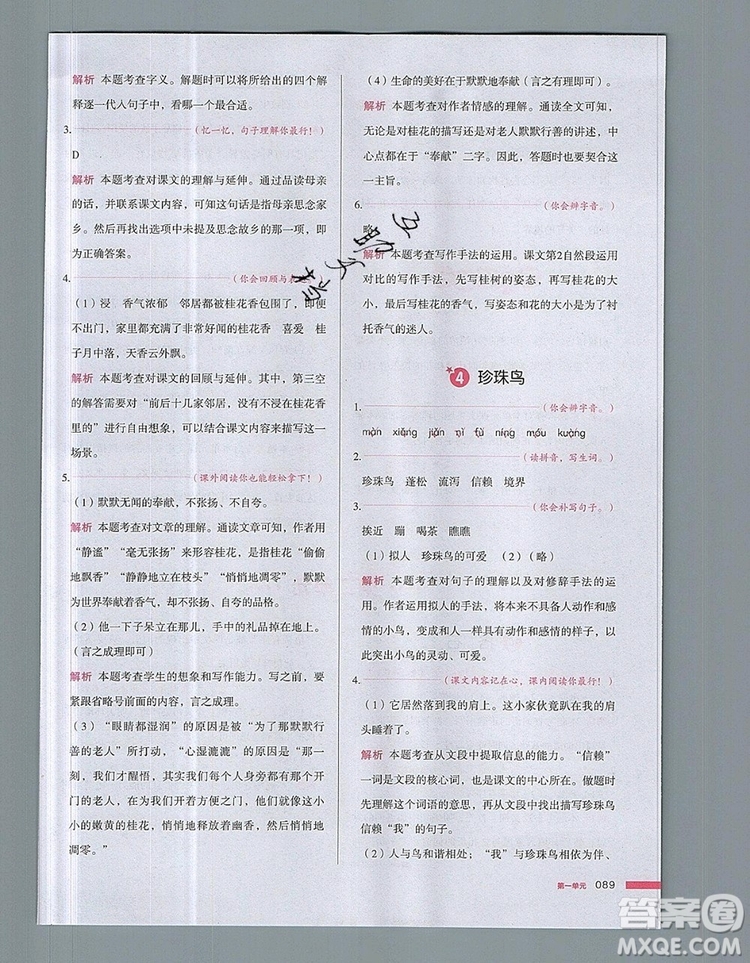 解析 本题考查字义。解题时可以将所给出的四个解
释逐一代入句子中，看哪一个最合适。
3.
(忆一忆，句子理解你最行！)
D
解析 本题考查对课文的理解与延伸。通过品读母亲
的话，并联系课文内容，可知这句话是指母亲思念家
乡。然后再找出选项中未提及思念故乡的那一项，即
为正确答案。
4.
(你会回顾与
(1) 浸 香气浓郁 邻居家被桂花香包围了，即使
不出门，家里也充满了非常好闻的桂花香 喜爱 桂
子月中落，天香云外飘。
解析 本题考查对课文的回顾与延伸。其中，第三空
的解答需要对“前后十几家邻居，没有不浸在桂花香
里的”进行自由想象，可以结合课文内容描写这一
场景。
5.
(课外阅读你也能轻松拿下！)
(1) 默默无闻的奉献，不张扬、不自夸。
解析 本题考查对文章的理解。通读文章可知，作者用
“静谧”“毫无张扬”来形容桂花，是说桂花“偷偷
地飘香”“静静地立在枝头”“悄悄地凋零”，默默
为世界奉献着香气，从不张扬、自夸的品格。
(2) 他一下子呆立在那儿，手中的礼品掉在地上。
(言之成理即可)
解析 本题考查学生的想象和写作能力。写之前，要
紧跟省略号前面的内容，言之成理。
(3) “眼睛都湿润”的原因是被“为了那默默行
善的老人”所打动，“心湿漉漉”的原因是“那一
刻，我们才醒悟，其实每个人身旁都有不计其数的开
门的老人，在默默地为我们奉献着，他们就像这小
小的嫩黄的桂花，悄悄地释放着幽香，然后悄悄地
凋零。”
(4) 生命的美好在于默默地奉献(言之有理即可)
解析 本题考查对作者情感的理解。通读全文可知，
无论是对桂花的描写还是对老人默默行善的讲述，中
心点都在于“奉献”二字。因此，答题时也要契合这
一主旨。
6.
(你会辨字音。)
略
解析 本题考查写作手法的运用。课文第2自然段运用
对比的写作手法，先写桂树的姿态、桂花的大小，然
后再写桂花的香气，写姿态和花的大小是为了衬
托香气的迷人。
4 珍珠鸟
1.
(你会辨字音。)
màn xiāng jiān nì fù níng móu kuàng
2.
(读拼音，写生词。)
珍珠鸟 蓬松 流泻 信赖 境界
3.
(你会补写句子。)
挨近 蹦 喝茶 瞧瞧
(1) 拟人 珍珠鸟的可爱 (2) (略)
解析 本题考查对句子的理解以及对修辞手法的运
用。作者运用拟人的手法，将没有人类动作和神
情的小鸟，变成与人一样具有动作和情感的样子，以
此突出小鸟的灵动、可爱。
4.
(课文内容记在心，课内阅读你最行！)
(1) 它居然落到我的肩上。这小家伙竟趴在我的肩
头睡着了。
解析 本题考查从文段中提取信息的能力。“信赖”
一词是文段的核心词，也是课文的中心所在。做题时
先理解这个词语的意思，再从文段中找出描写珍珠鸟
信赖“我”的句子。
(2) 人与鸟和谐相处；“我”与珍珠鸟相互为伴、
第一单元 089
答案圈
MXQE.COM